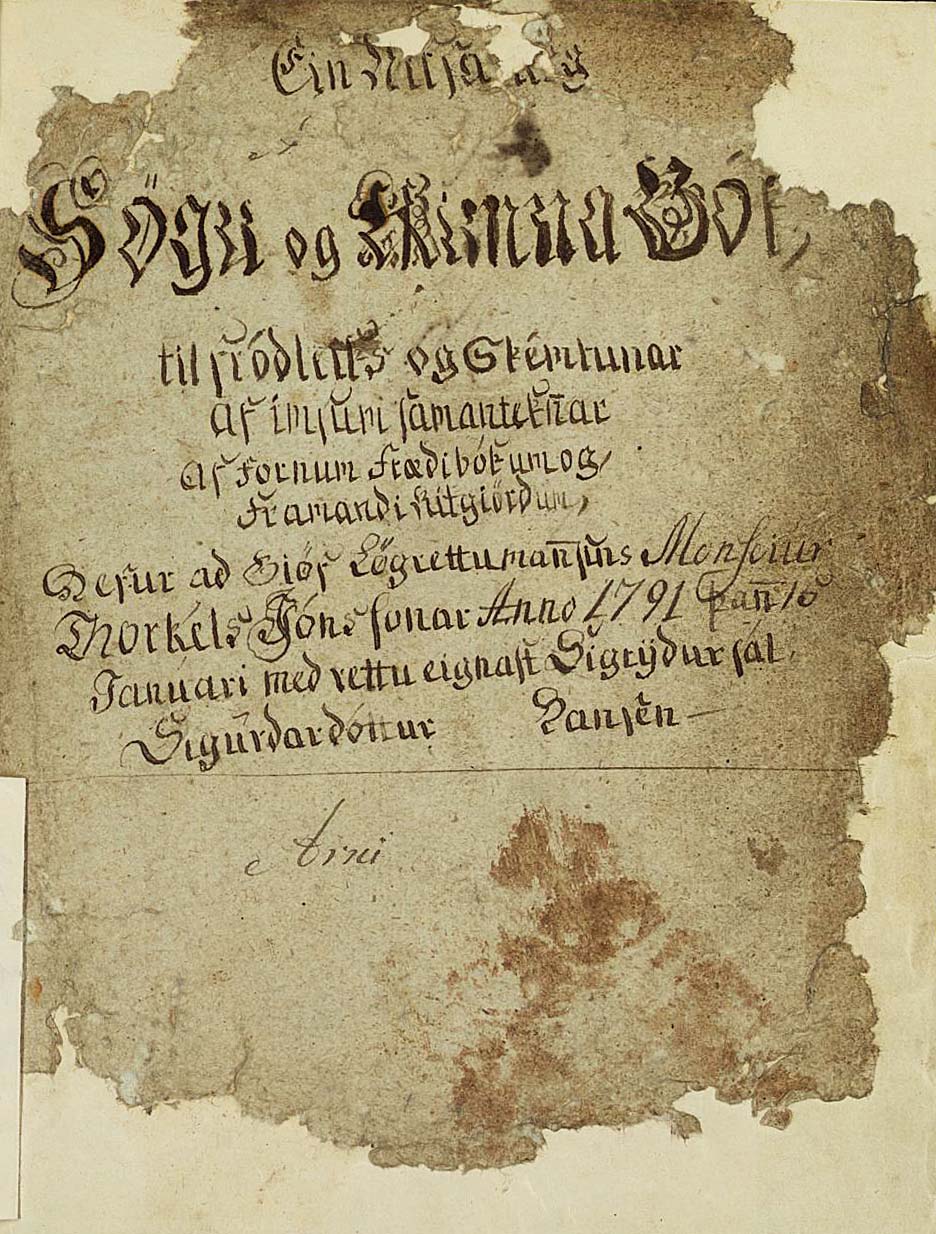 Ein Nitsa
Sögu og Rimna Bók,
til fródleiks og Skémtunar
af imsum samanteknar
af Fornum Frædibókum og
Framandi Ritgiördum,
Hefur ad Giöf Lögrettumanńsins Monseiur
Thorkels Jónssonar Anno 1791 þanń 16
Januari med rettu eignast Sigrÿdur sál.
Sigurdardóttur Hansen —
Arni